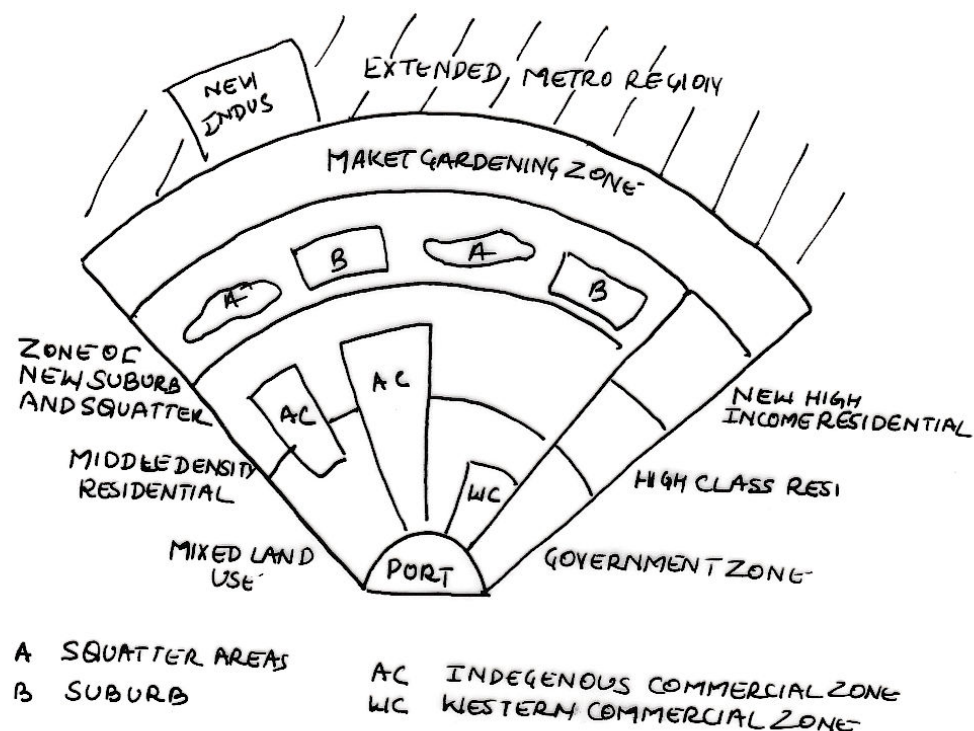 NEW
INDUS
EXTENDED METRO REGION
MAKET GARDENING ZONE
A
B
A
B
ZONE OF
NEW SUBURB
AND SQUATTER
AC
AC
NEW HIGH
INCOME RESIDENTIAL
MIDDLE DENSITY
RESIDENTIAL
WC
HIGH CLASS RESI
MIXED LAND
USE
PORT
GOVERNMENT ZONE
A SQUATTER AREAS
B SUBURB
AC INDEGENOUS COMMERCIAL ZONE
WC WESTERN COMMERCIAL ZONE